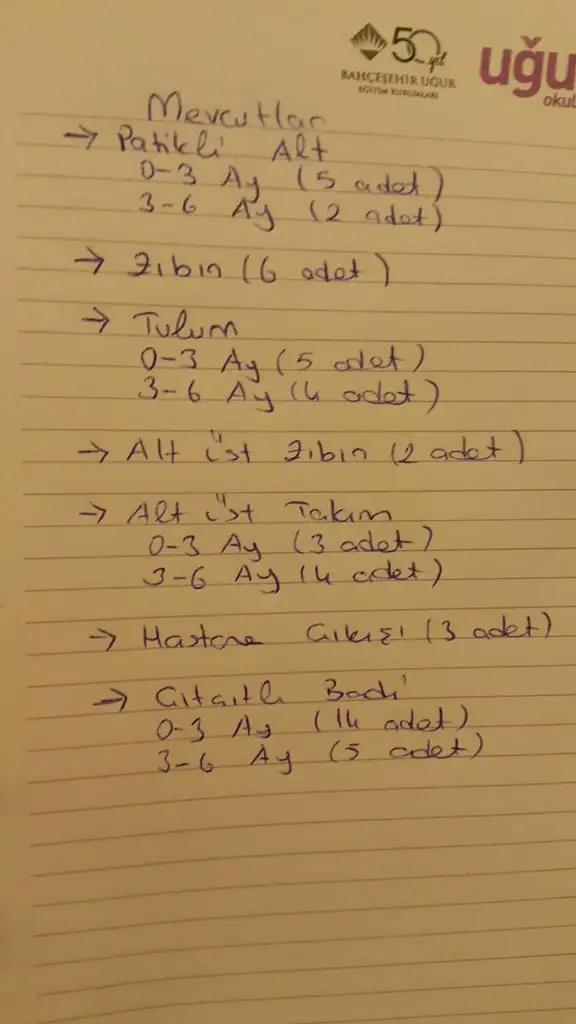 50. yıl
BAHÇEŞEHİR UĞUR
EĞİTİM KURUMLARI
uğu
okul
Mevcutlar
→ Patikli Alt
0-3 Ay (5 adet)
3-6 Ay (2 adet)
→ Zıbın (6 adet)
→ Tulum
0-3 Ay (5 adet)
3-6 Ay (4 adet)
→ Alt üst zıbın (2 adet)
→ Alt üst Takım
0-3 Ay (3 adet)
3-6 Ay (4 adet)
→ Hastane Çıkışı (3 adet)
→ Çıtçıtlı Badi
0-3 Ay (14 adet)
3-6 Ay (5 adet)